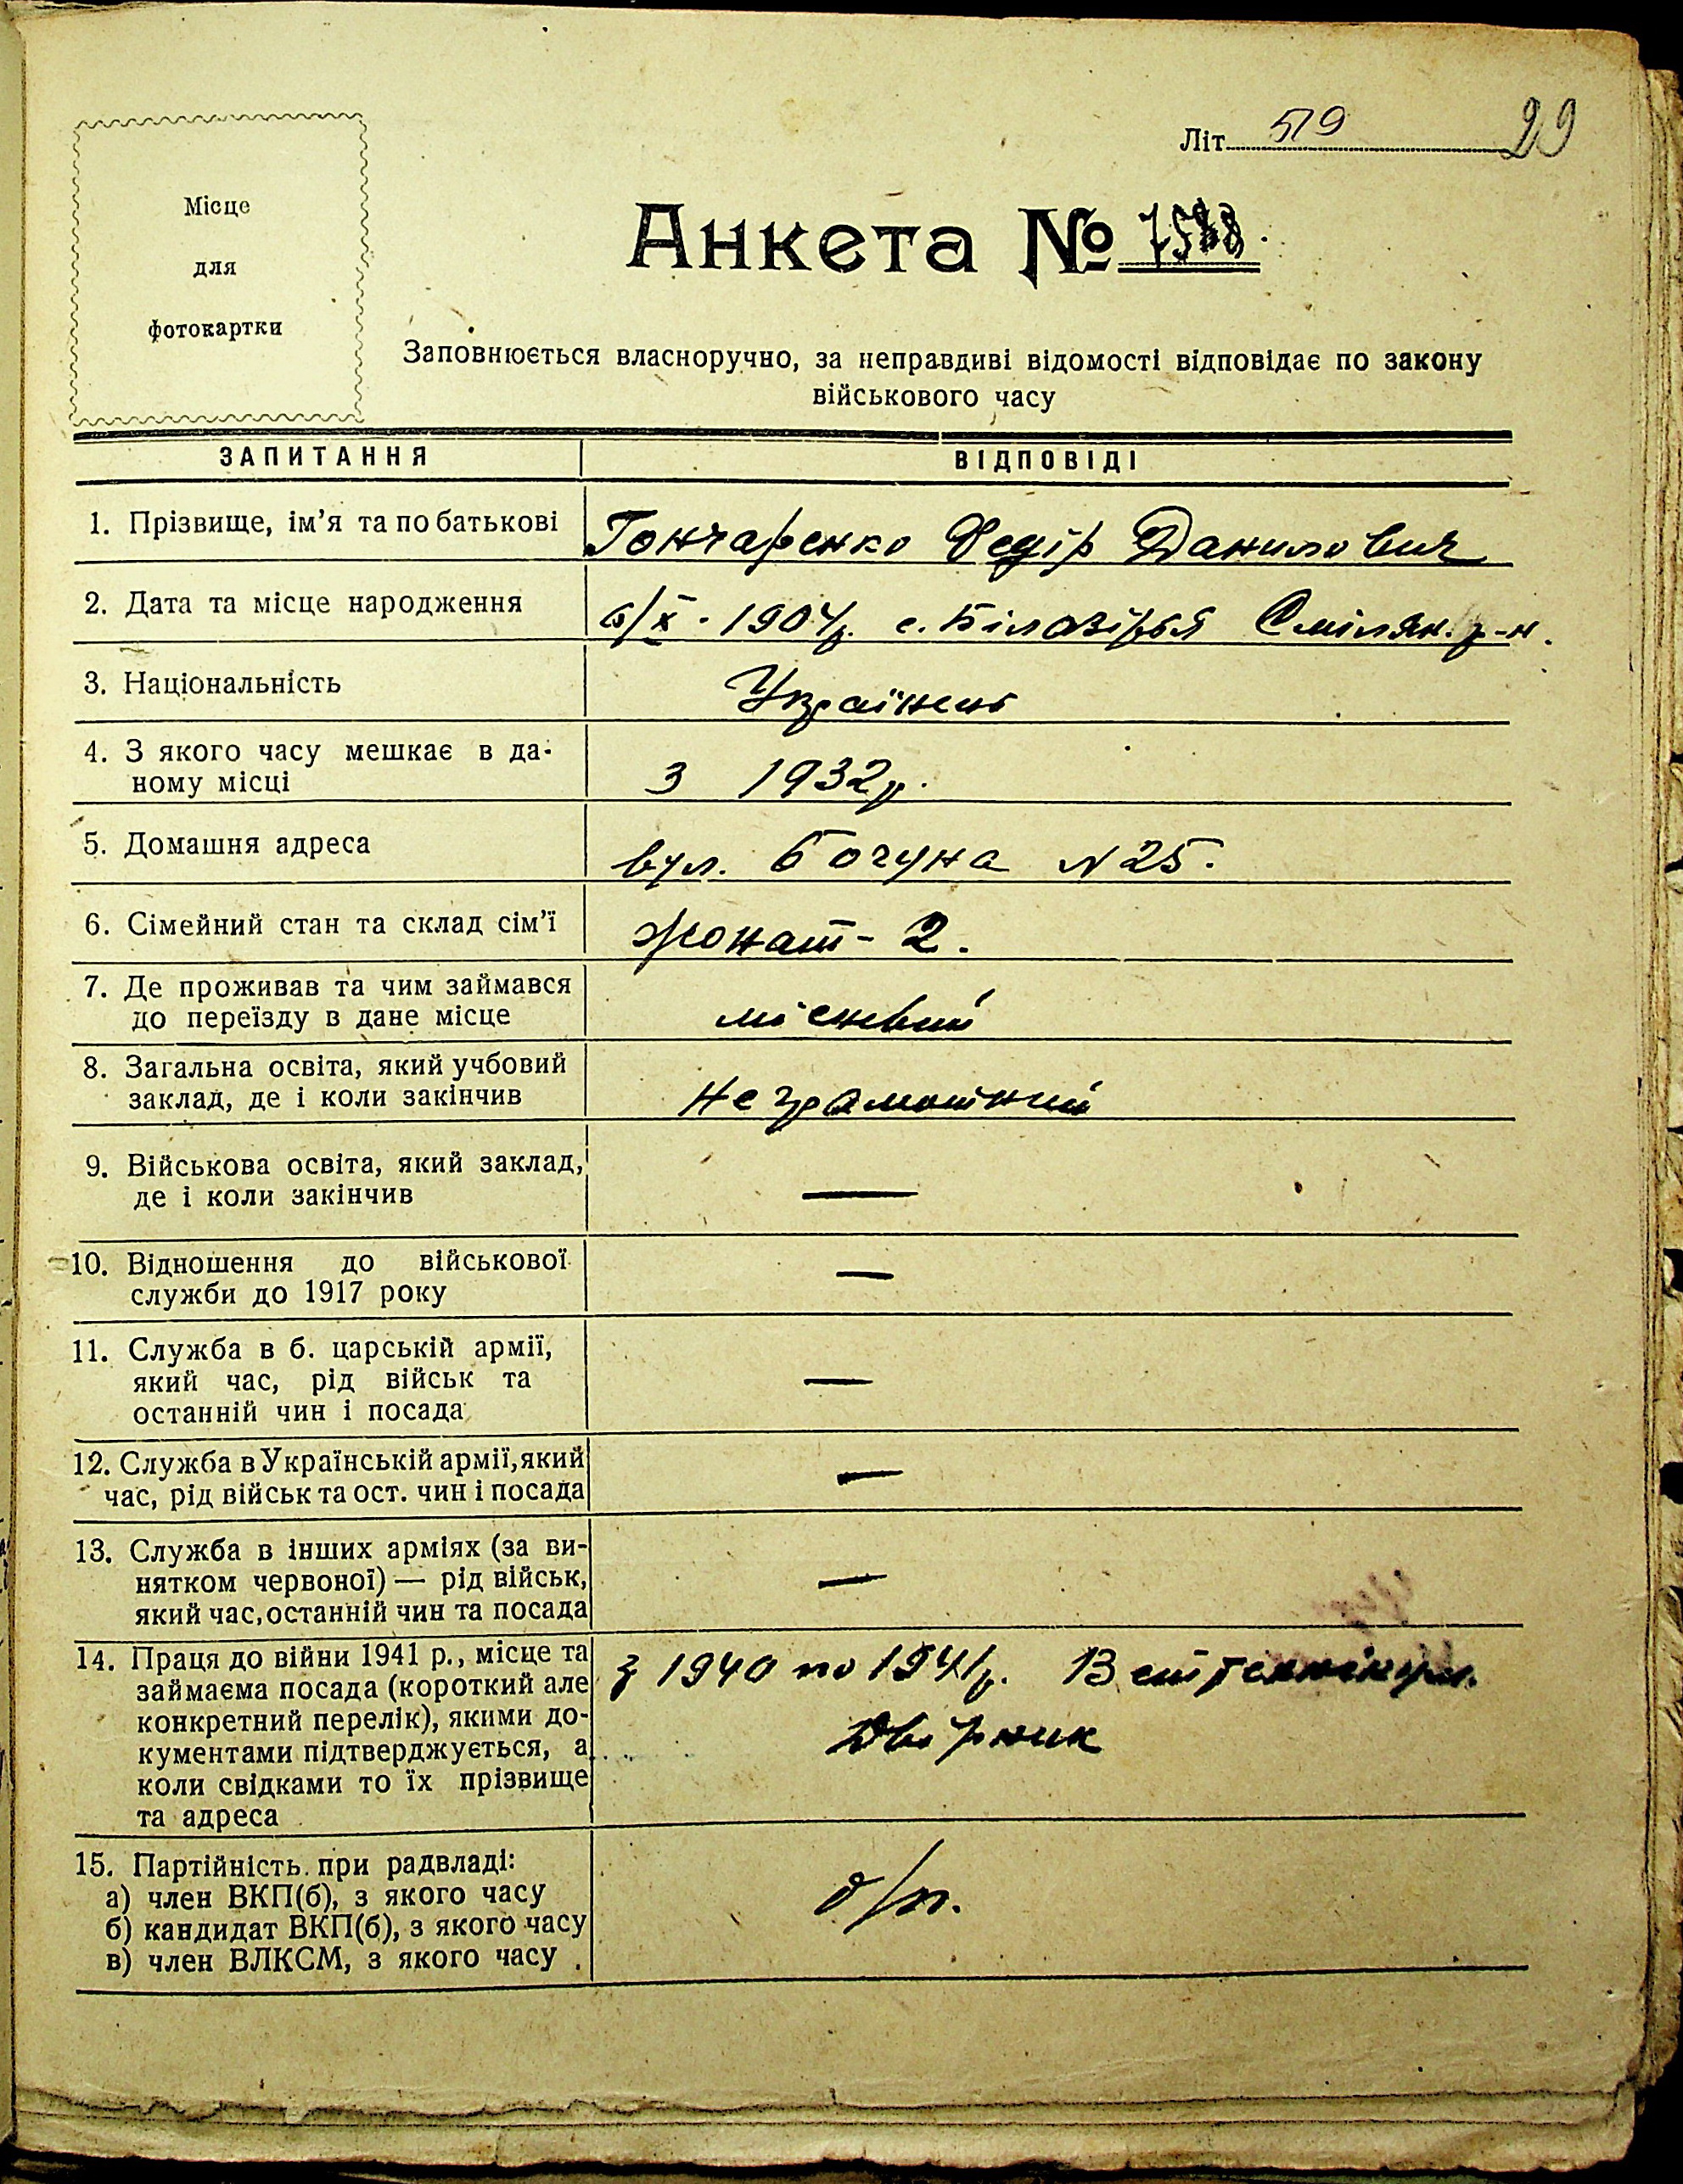 Місце
для
фотокартки
Літ. 519 29
Анкета № 7588.
Заповнюється власноручно, за неправдиві відомості відповідає по закону
військового часу
ЗАПИТАННЯ ВІДПОВІДІ
1. Прізвище, ім'я та по батькові Гончаренко Федір Данилович
2. Дата та місце народження 6/X - 1904р. с. Білозірья Смілян. р-н.
3. Національність Українець
4. З якого часу мешкає в да-
ному місці З 1932р.
5. Домашня адреса вул. Богуна N 25.
6. Сімейний стан та склад сім'ї Жонат - 2.
7. Де проживав та чим займався
до переїзду в дане місце місцевий
8. Загальна освіта, який учбовий
заклад, де і коли закінчив Не грамотний
9. Військова освіта, який заклад,
де і коли закінчив —
10. Відношення до військової
служби до 1917 року —
11. Служба в б. царській армії,
який час, рід військ та
останній чин і посада —
12. Служба в Українській армії, який
час, рід військ та ост. чин і посада —
13. Служба в інших арміях (за ви-
нятком червоної) — рід військ,
який час, останній чин та посада —
14. Праця до війни 1941 р., місце та з 1940 по 1941р.
займаєма посада (короткий але
конкретний перелік), якими до- Двірник
кументами підтверджується, а
коли свідками то їх прізвище
та адреса
15. Партійність при радвладі:
а) член ВКП(б), з якого часу б/п.
б) кандидат ВКП(б), з якого часу
в) член ВЛКСМ, з якого часу